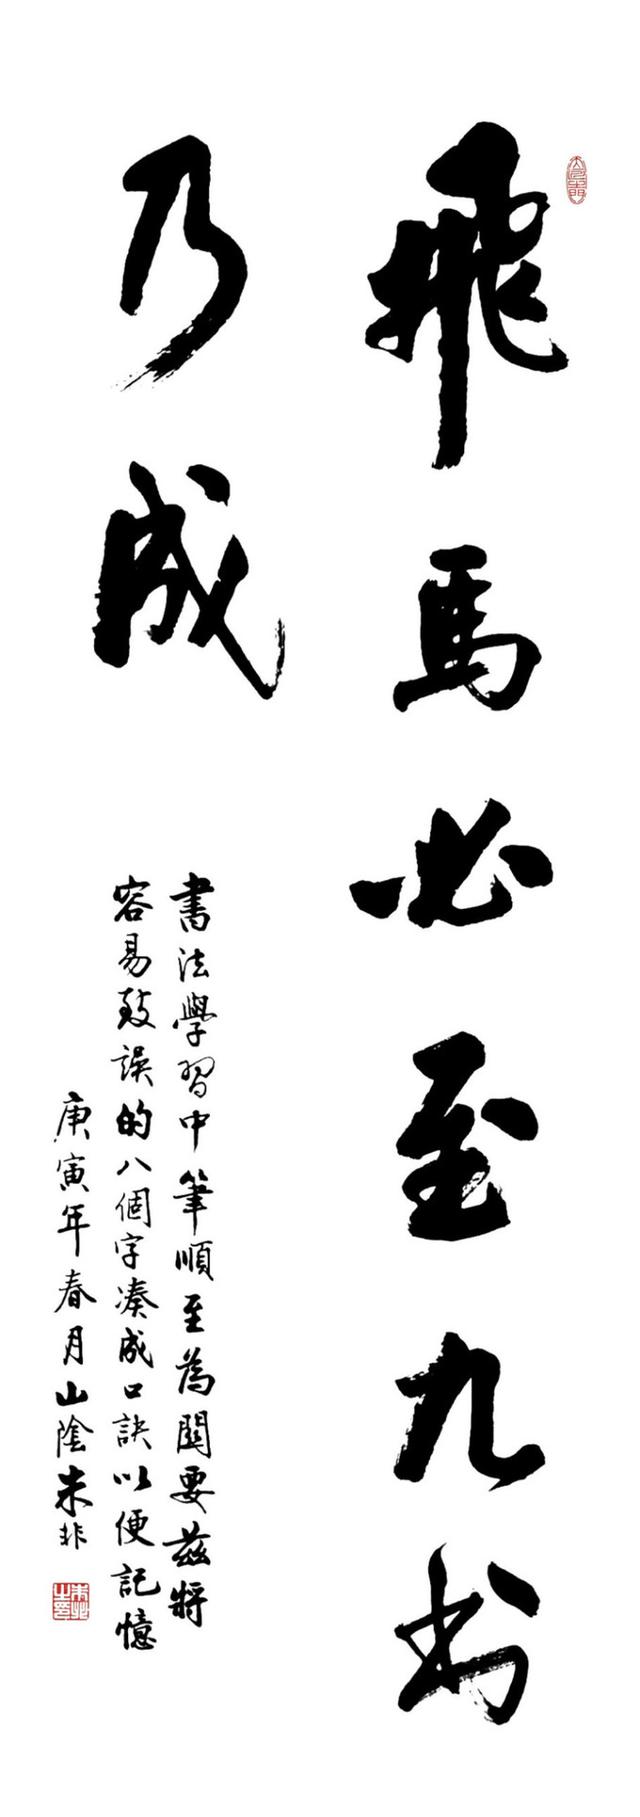 飛馬必至九书
乃成
書法學習中筆順至為關要茲將
容易致誤的八個字凑成口訣以便記憶
庚寅年春月山陰朱非